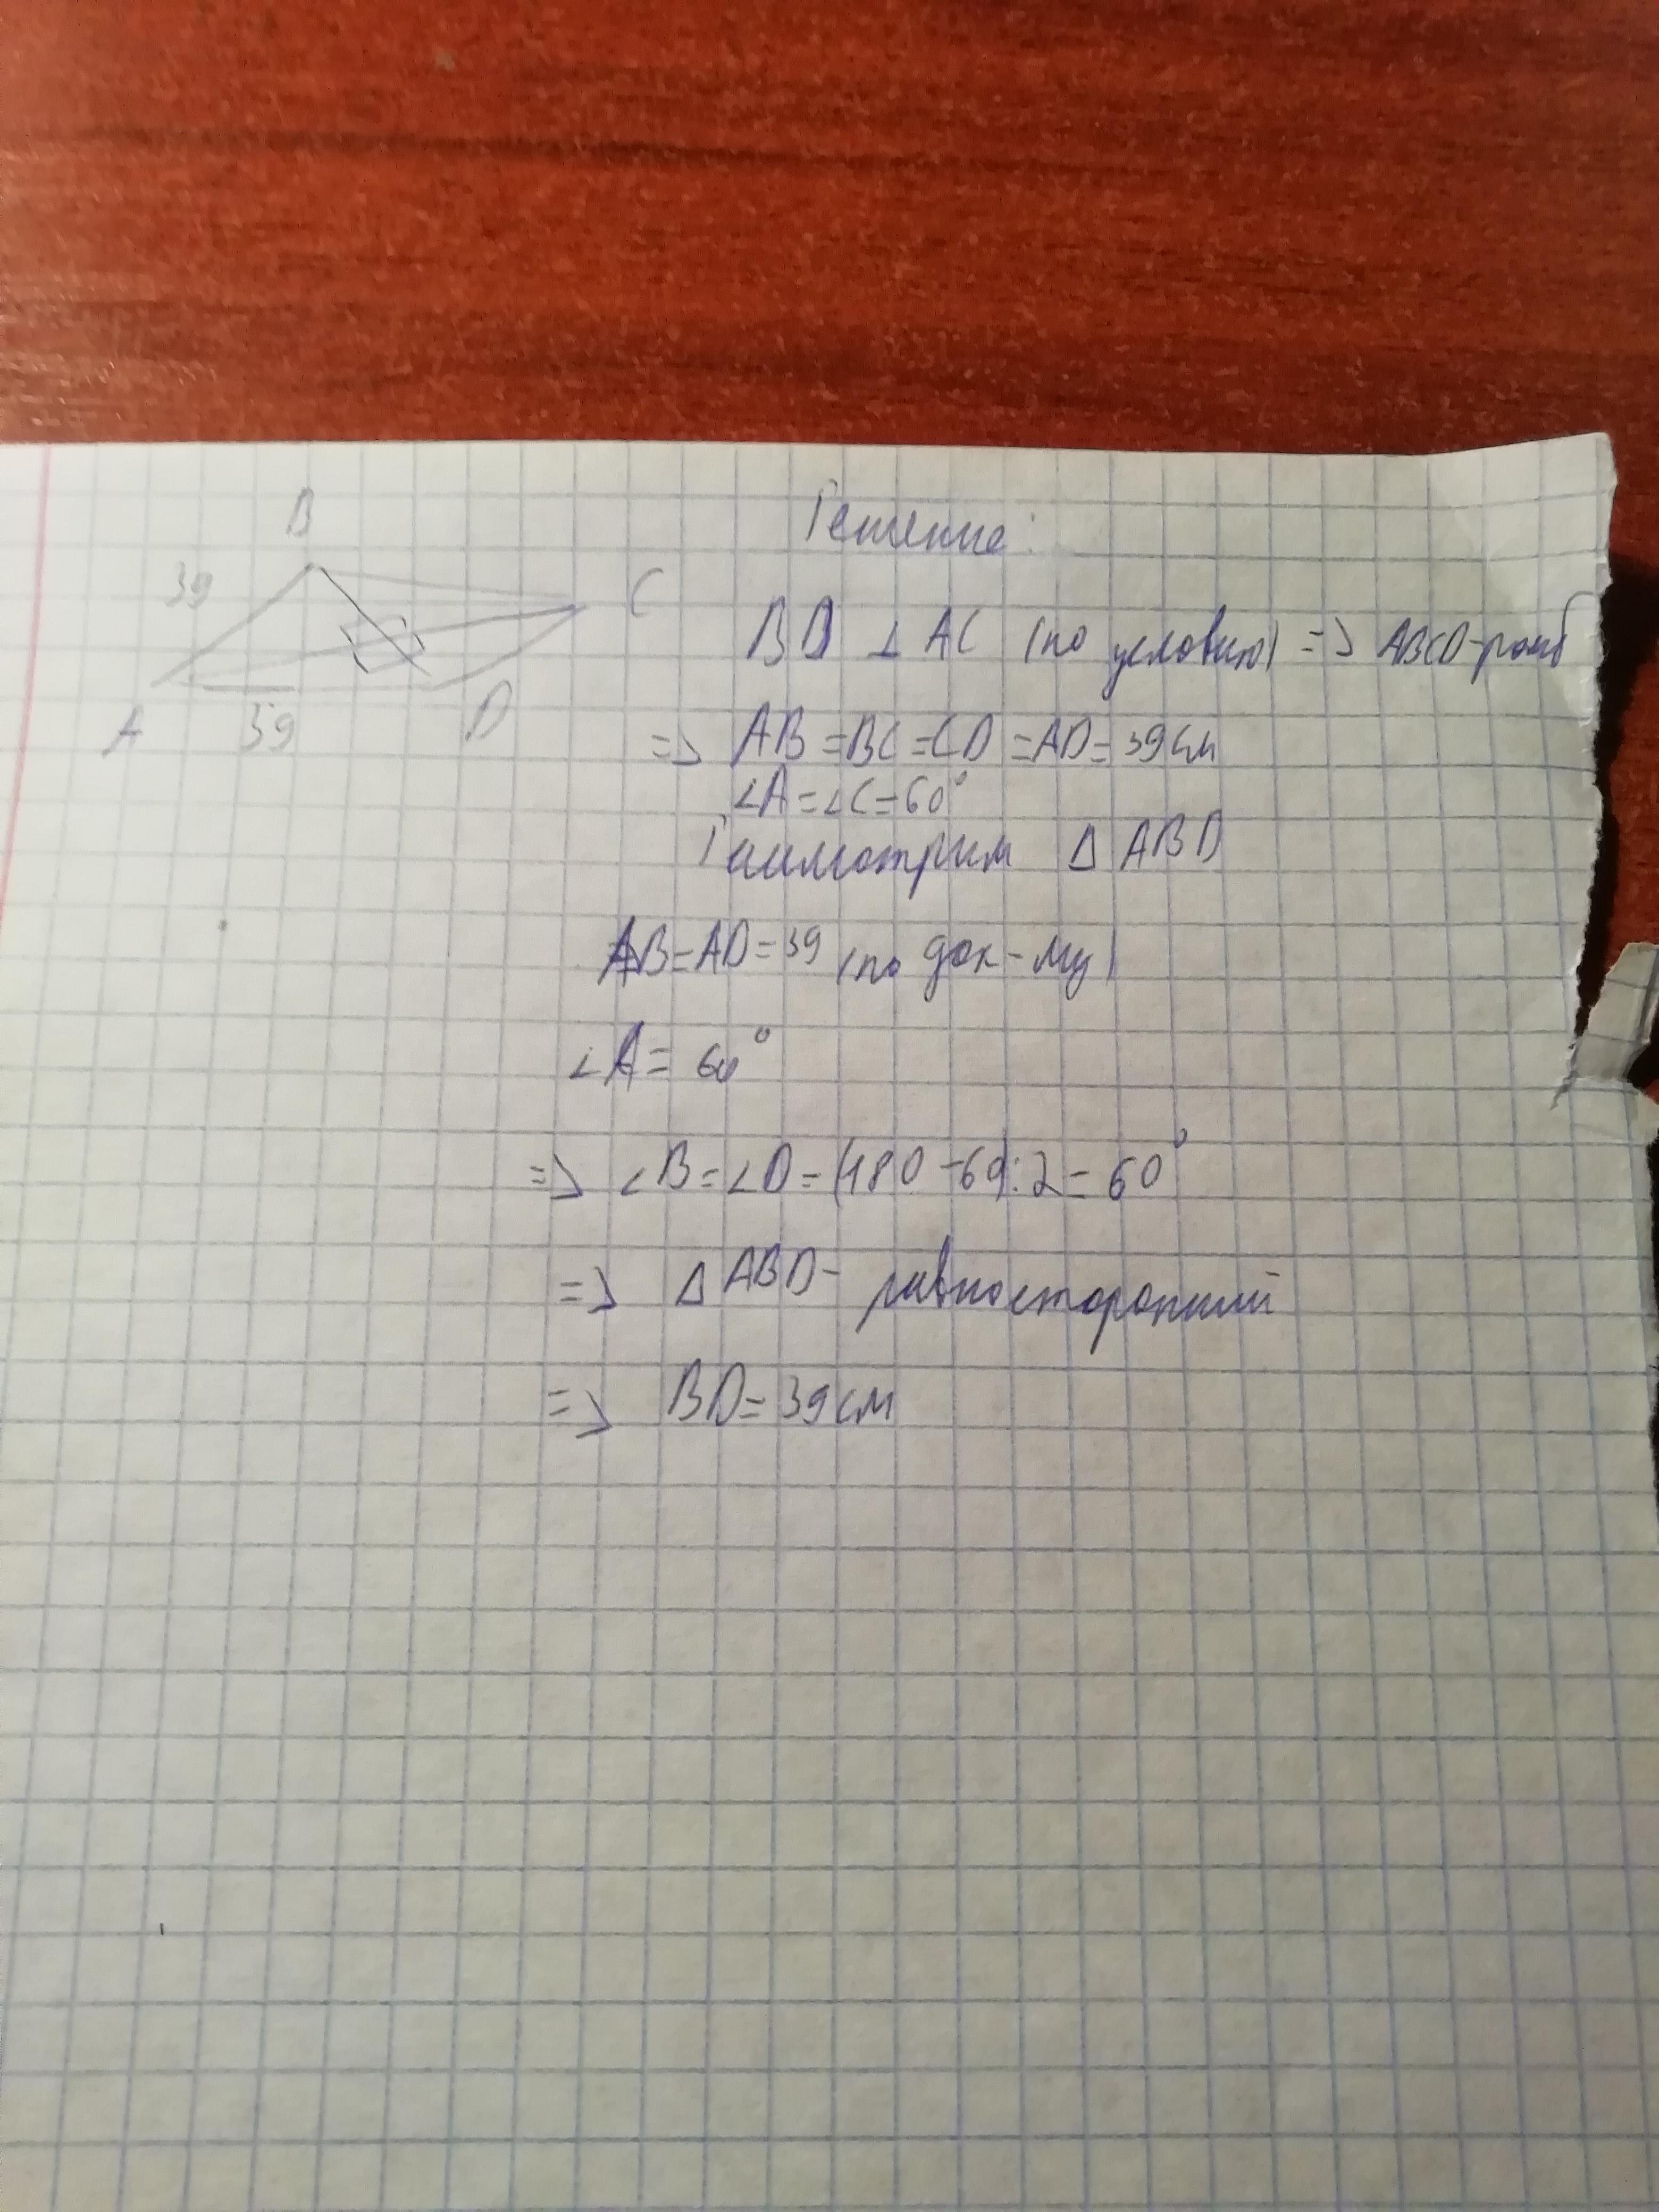 B
39
C
A
39
D
Решение:
BD ⊥ AC (по условию) => ABCD-ромб
=> AB=BC=CD=AD=39см
∠A=∠C=60°
Рассмотрим Δ ABD
AB=AD=39 (по док-му)
∠A= 60°
=> ∠B=∠D=(180-60):2=60°
=> Δ ABD- равносторонний
=> BD=39см